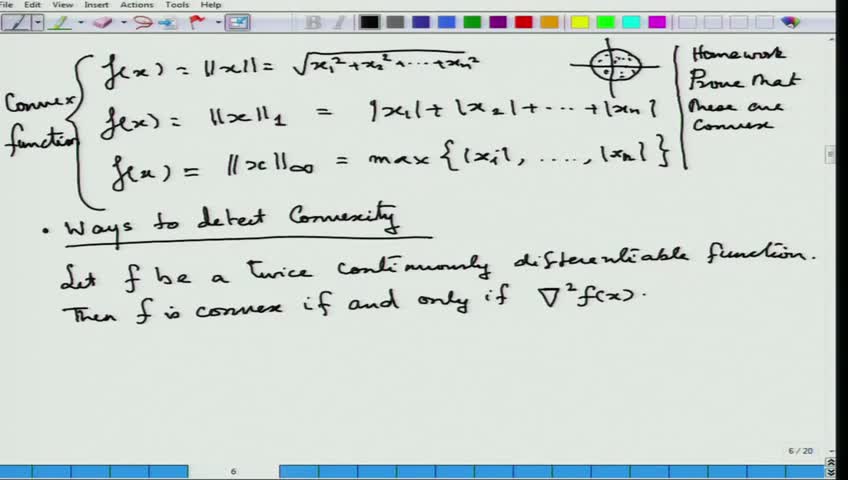 File Edit View Insert Actions Tools Help
Convex function
f(x) = ||x|| = √x₁² + x₂² + ... + xₙ²
f(x) = ||x||₁ = |x₁| + |x₂| + ... + |xₙ|
f(x) = ||x||∞ = max {|xᵢ|, ...., |xₙ|}
Homework
Prove that
these are
convex
• Ways to detect Convexity
Let f be a twice continuously differentiable function.
Then f is convex if and only if ∇²f(x).
6/20
6